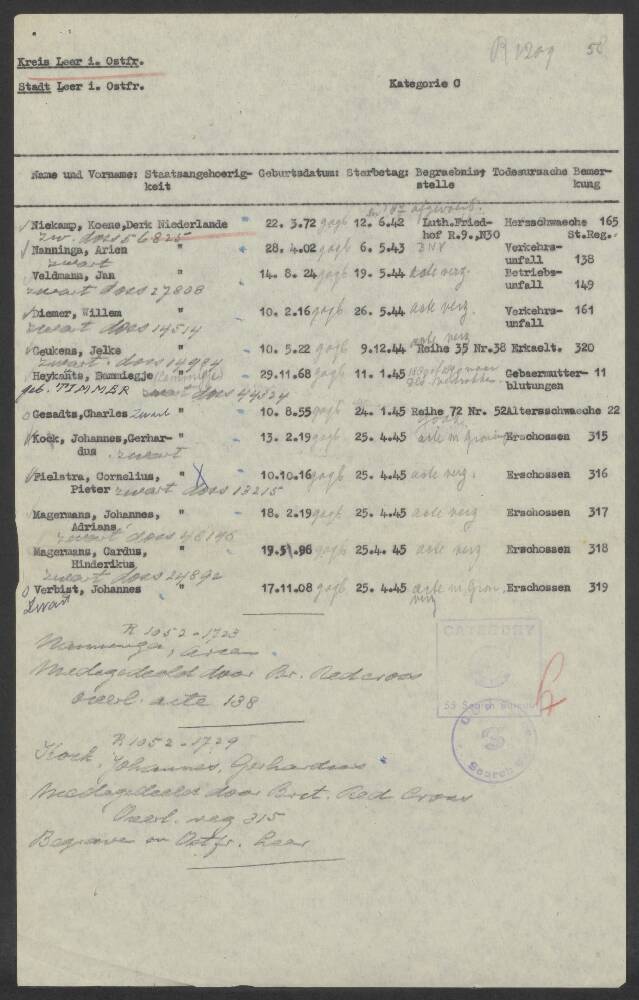 R 1209 58
Kreis Leer i. Ostfr.
Stadt Leer i. Ostfr. Kategorie C
Name und Vorname: Staatsangehoerig- Geburtsdatum: Sterbetag: Begraebnis- Todesursache Bemer-
keit stelle kung
Niekamp, Koene,Derk Niederlande 22. 3.72 12. 6.42 Luth.Fried- Herzschwaeche 165
zw. doss 56825 hof R.9.,N30 St.Reg.
Nanninga, Arien " 28. 4.02 6. 5.43 Verkehrs-
zwart unfall 138
Veldmann, Jan " 14. 8. 24 19. 5.44 acte verz. Betriebs-
zwart doss 27808 unfall 149
Diemer, Willem " 10. 2.16 26. 5.44 acte verz. Verkehrs- 161
zwart doss 14514 unfall
acte verz
Geukens, Jelke " 10. 5.22 9.12.44 Reihe 35 Nr.38 Erkaelt. 320
zwart doss 14984
Heykants, Hammiegje " 29.11.68 11. 1.45 Gebaermutter- 11
geb. TIMMER zwart doss 44324 blutungen
Gezadts,Charles zwart " 10. 8.55 24. 1.45 Reihe 72 Nr. 52 Altersschwaeche 22
Kock, Johannes,Gerhar- " 13. 2.19 25. 4.45 acte in Gron Erschossen 315
dus zwart
Pielstra, Cornelius, " 10.10.16 25. 4.45 acte verz. Erschossen 316
Pieter zwart doss 13215
Magermans, Johannes, " 18. 2.19 25. 4.45 acte verz Erschossen 317
Adrians,
zwart doss 48146
Magermans, Cardus, " 19.5.96 25.4. 45 acte verz Erschossen 318
Hinderikus
zwart doss 24892
Verbist, Johannes " 17.11.08 25. 4.45 acte in Gron. Erschossen 319
Zwart verz
R 1052-1723
Nanninga, Arien
Medegedeeld door Br. Redcross
overl. acte 138
R 1052-1729
Kock, Johannes, Gerhardus
Medegedeeld door Brit. Red Cross
Overl. reg 315
Begraven in Ostfr. Leer
CATEGORY
C
SS Search Bureau
Search